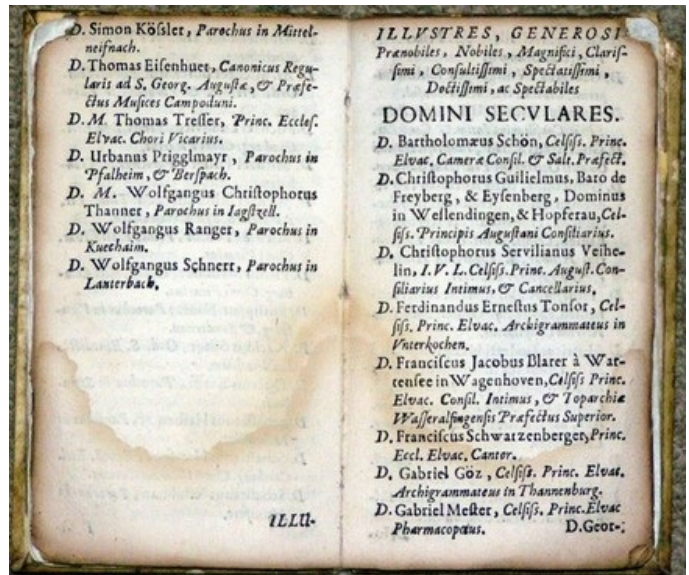 D. Simon Köſsler, Parochus in Mittel-
neifnach.
D. Thomas Eiſenhuet, Canonicus Regu-
laris ad S. Georg. Auguſtæ, & Præfe-
ctus Muſices Campoduni.
D. M. Thomas Treſſer, Princ. Eccleſ.
Elvac. Chori Vicarius.
D. Urbanus Prigglmayr, Parochus in
Pfalheim, & Berſpach.
D. M. Wolfgangus Chriſtophorus
Thanner, Parochus in Iagſtzell.
D. Wolfgangus Ranger, Parochus in
Kuechaim.
D. Wolfgangus Schnert, Parochus in
Lauterbach.
ILLU-
ILLVSTRES, GENEROSI
Prænobiles, Nobiles, Magnifici, Clariſ-
ſimi, Conſultiſſimi, Spectatiſſimi,
Doctiſſimi, ac Spectabiles
DOMINI SECVLARES.
D. Bartholomæus Schön, Celſiſs. Princ.
Elvac. Cameræ Conſil. & Salt. Præfect.
D. Chriſtophorus Guilielmus, Baro de
Freyberg, & Eyſenberg, Dominus
in Weſlendingen, & Hopferau, Cel-
ſiſs. Principis Auguſtani Conſiliarius.
D. Chriſtophorus Servilianus Veihe-
lin, I. V. L. Celſiſs. Princ. Auguſt. Con-
ſiliarius Intimus, & Cancellarius.
D. Ferdinandus Erneſtus Tonſor, Cel-
ſiſs. Princ. Elvac. Archigrammateus in
Vnterkochen.
D. Franciſcus Jacobus Blarer à War-
tenſee in Wagenhoven, Celſiſs Princ.
Elvac. Conſil. Intimus, & Toparchiæ
Waſſeralfingenſis Præfectus Superior.
D. Franciſcus Schwarzenberger, Princ.
Eccl. Elvac. Cantor.
D. Gabriel Göz, Celſiſs. Princ. Elvac.
Archigrammateus in Thannenburg.
D. Gabriel Meſter, Celſiſs. Princ. Elvac
Pharmacopœus. D. Geor-